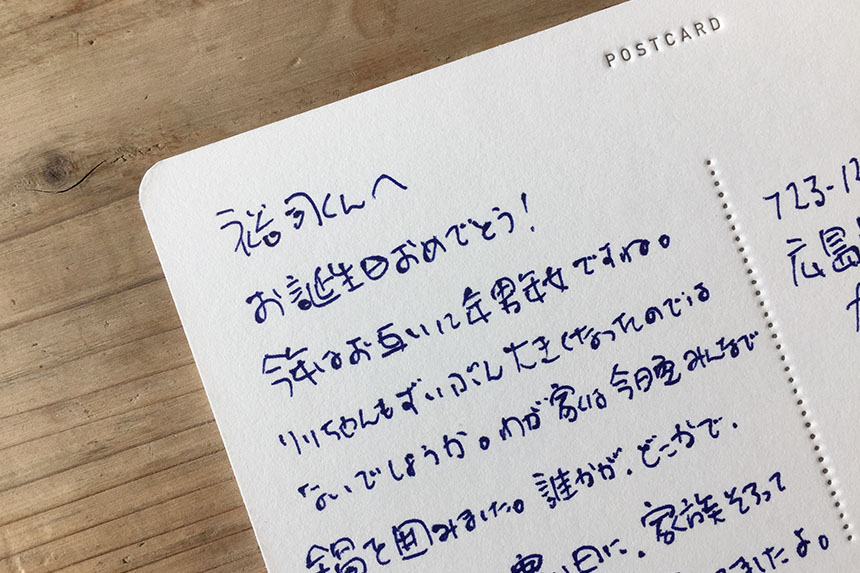 POSTCARD
裕司くんへ
お誕生日おめでとう!
今年はお互いに年男年女ですね。
リリちゃんもずいぶん大きくなったのでは
ないでしょうか。わが家は今日皆みんなで
鍋を囲みました。誰かが、どこかで、
い日に、家族そろって
ましたよ。
723-12
広島